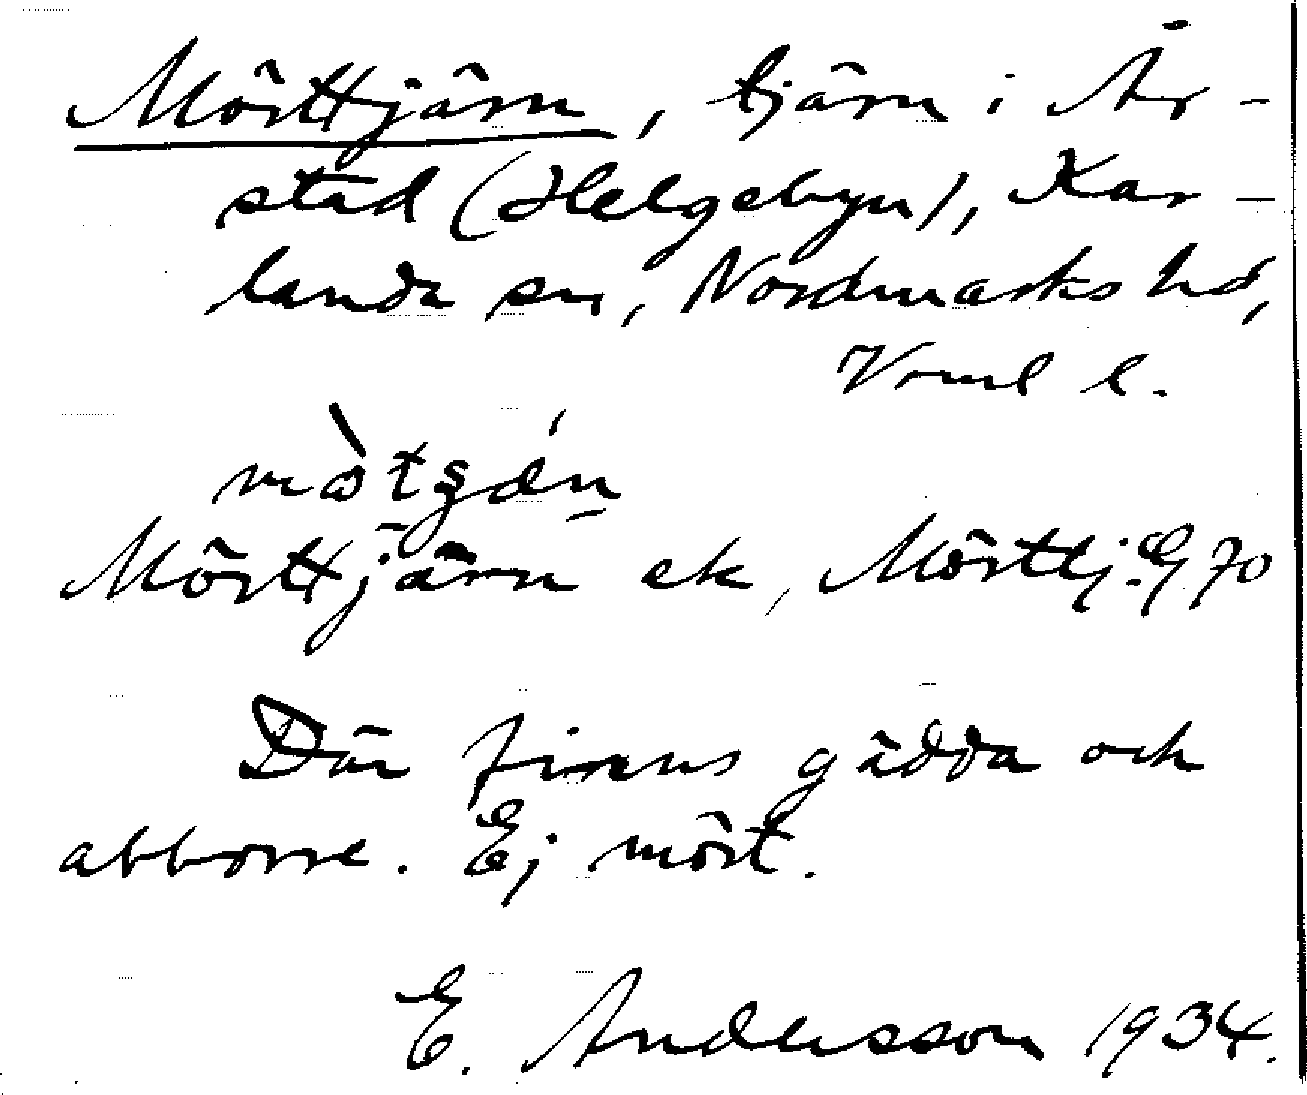 Mörttjärn, tjärn i År-
stad (Helgebyn), Kar-
landa sn, Nordmarks hd,
Vrml l.
Mörttjärn ek, Mörttj. G 70
Där finns gädda och
abborre. Ej mört.
E. Andersson 1934.